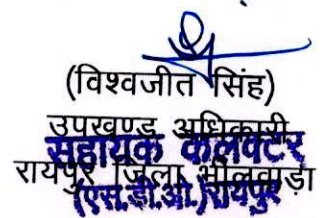 (विश्वजीत सिंह)
उपखण्ड अधिकारी
सहायक कलक्टर
रायपुर जिला भीलवाड़ा
(एस.डी.ओ.) रायपुर